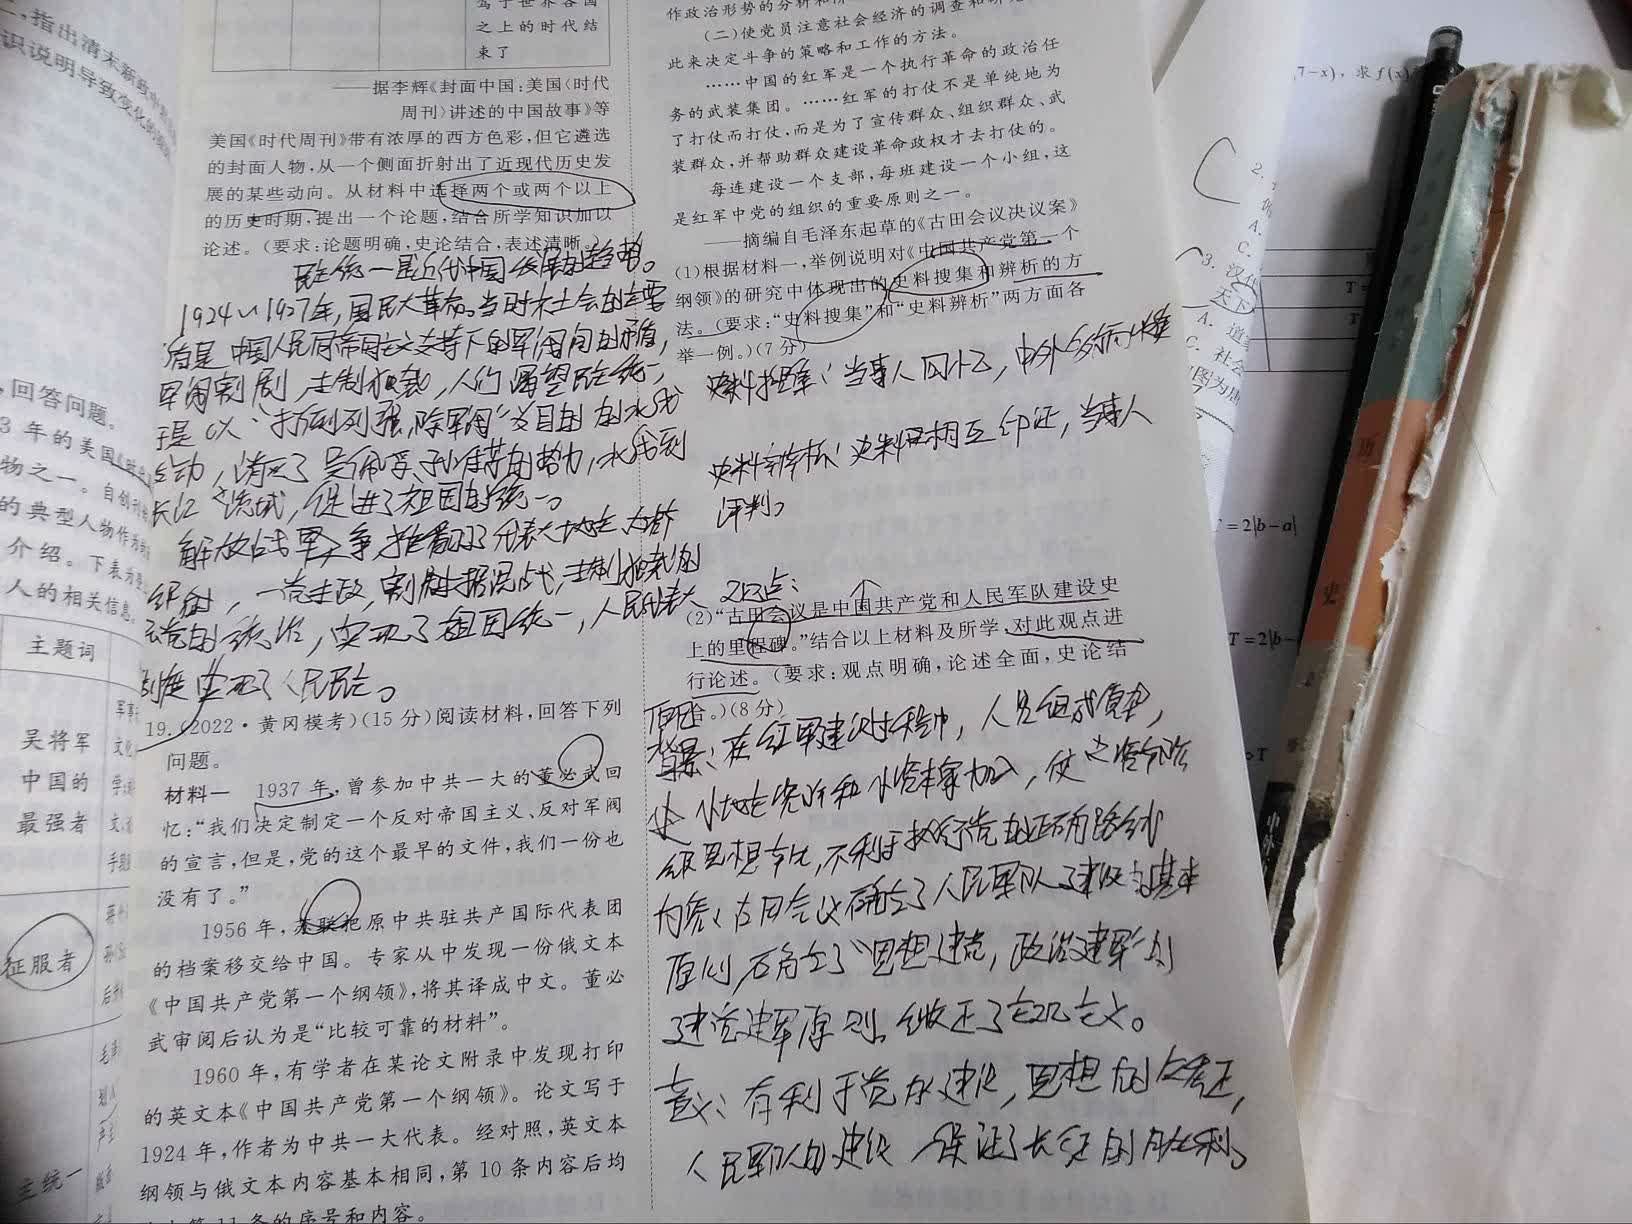 ,指出清末新政中
识说明导致变化的
,回答问题。
3 年的美国《时
物之一。自创刊
的典型人物作为
介绍。下表为
人的相关信息。
主题词
吴将军
中国的
最强者
征服者
主统一
驾于世界各国
之上的时代结
束了
——据李辉《封面中国:美国〈时代
周刊〉讲述的中国故事》等
美国《时代周刊》带有浓厚的西方色彩,但它遴选
的封面人物,从一个侧面折射出了近现代历史发
展的某些动向。从材料中选择两个或两个以上
的历史时期,提出一个论题,结合所学知识加以
论述。(要求:论题明确,史论结合,表述清晰。)
民主统一是近代中国发展的趋势。
1924~1927年,国民大革命。当时社会的主要
矛盾是中国人民同帝国主义支持下的军阀间的矛盾,
军阀割剧,专制独裁,人们渴望民主统一,
于是以“打倒列强,除军阀”为目的的北伐
运动,消灭了吴佩孚、孙传芳的势力,北伐到
长江流域,促进了祖国的统一。
解放战争推翻了代表大地主
一党专政,割据混战,专制独裁的
国民党的统治,实现了祖国统一,人民代表大
制度实现了人民民主。
19.(2022·黄冈模考)(15分)阅读材料,回答下列
问题。
材料一 1937 年,曾参加中共一大的董必武回
忆:“我们决定制定一个反对帝国主义、反对军阀
的宣言,但是,党的这个最早的文件,我们一份也
没有了。”
1956 年,苏联把原中共驻共产国际代表团
的档案移交给中国。专家从中发现一份俄文本
《中国共产党第一个纲领》,将其译成中文。董必
武审阅后认为是“比较可靠的材料”。
1960 年,有学者在某论文附录中发现打印
的英文本《中国共产党第一个纲领》。论文写于
1924 年,作者为中共一大代表。经对照,英文本
纲领与俄文本内容基本相同,第 10 条内容后均
第 11 条的序号和内容。
作政治形势的分析和
(二)使党员注意社会经济的调查和研究
此来决定斗争的策略和工作的方法。
……中国的红军是一个执行革命的政治任
务的武装集团。……红军的打仗不是单纯地为
了打仗而打仗,而是为了宣传群众、组织群众、武
装群众,并帮助群众建设革命政权才去打仗的。
每连建设一个支部,每班建设一个小组,这
是红军中党的组织的重要原则之一。
——摘编自毛泽东起草的《古田会议决议案》
(1)根据材料一,举例说明对《中国共产党第一个
纲领》的研究中体现出的史料搜集和辨析的方
法。(要求:“史料搜集”和“史料辨析”两方面各
举一例。)(7 分)
史料搜集:当事人回忆,中外分析收集
史料辨析:史料互相互印证,当事人
评判。
观点:
(2)“古田会议是中国共产党和人民军队建设史
上的里程碑。”结合以上材料及所学,对此观点进
行论述。(要求:观点明确,论述全面,史论结
合。)(8 分)
背景:在红军建设过程中,人员组成复杂,
小地主资产和小资本家加入,使之阶
级思想变化,不利于执行党的正确路线
内容:古田会议确立了人民军队建设的基本
原则,确立了“思想建党,政治建军”的
建党建军原则,纠正了主观主义。
意义:有利于党的建设,思想的
人民军队的建设,保证了长征的胜利。
7-x),求f(x)
2.
A.
C.
3. 汉
天下
A. 道
C. 社会
图为
T=
=2|b-a|
T=2|b-
T
历
史